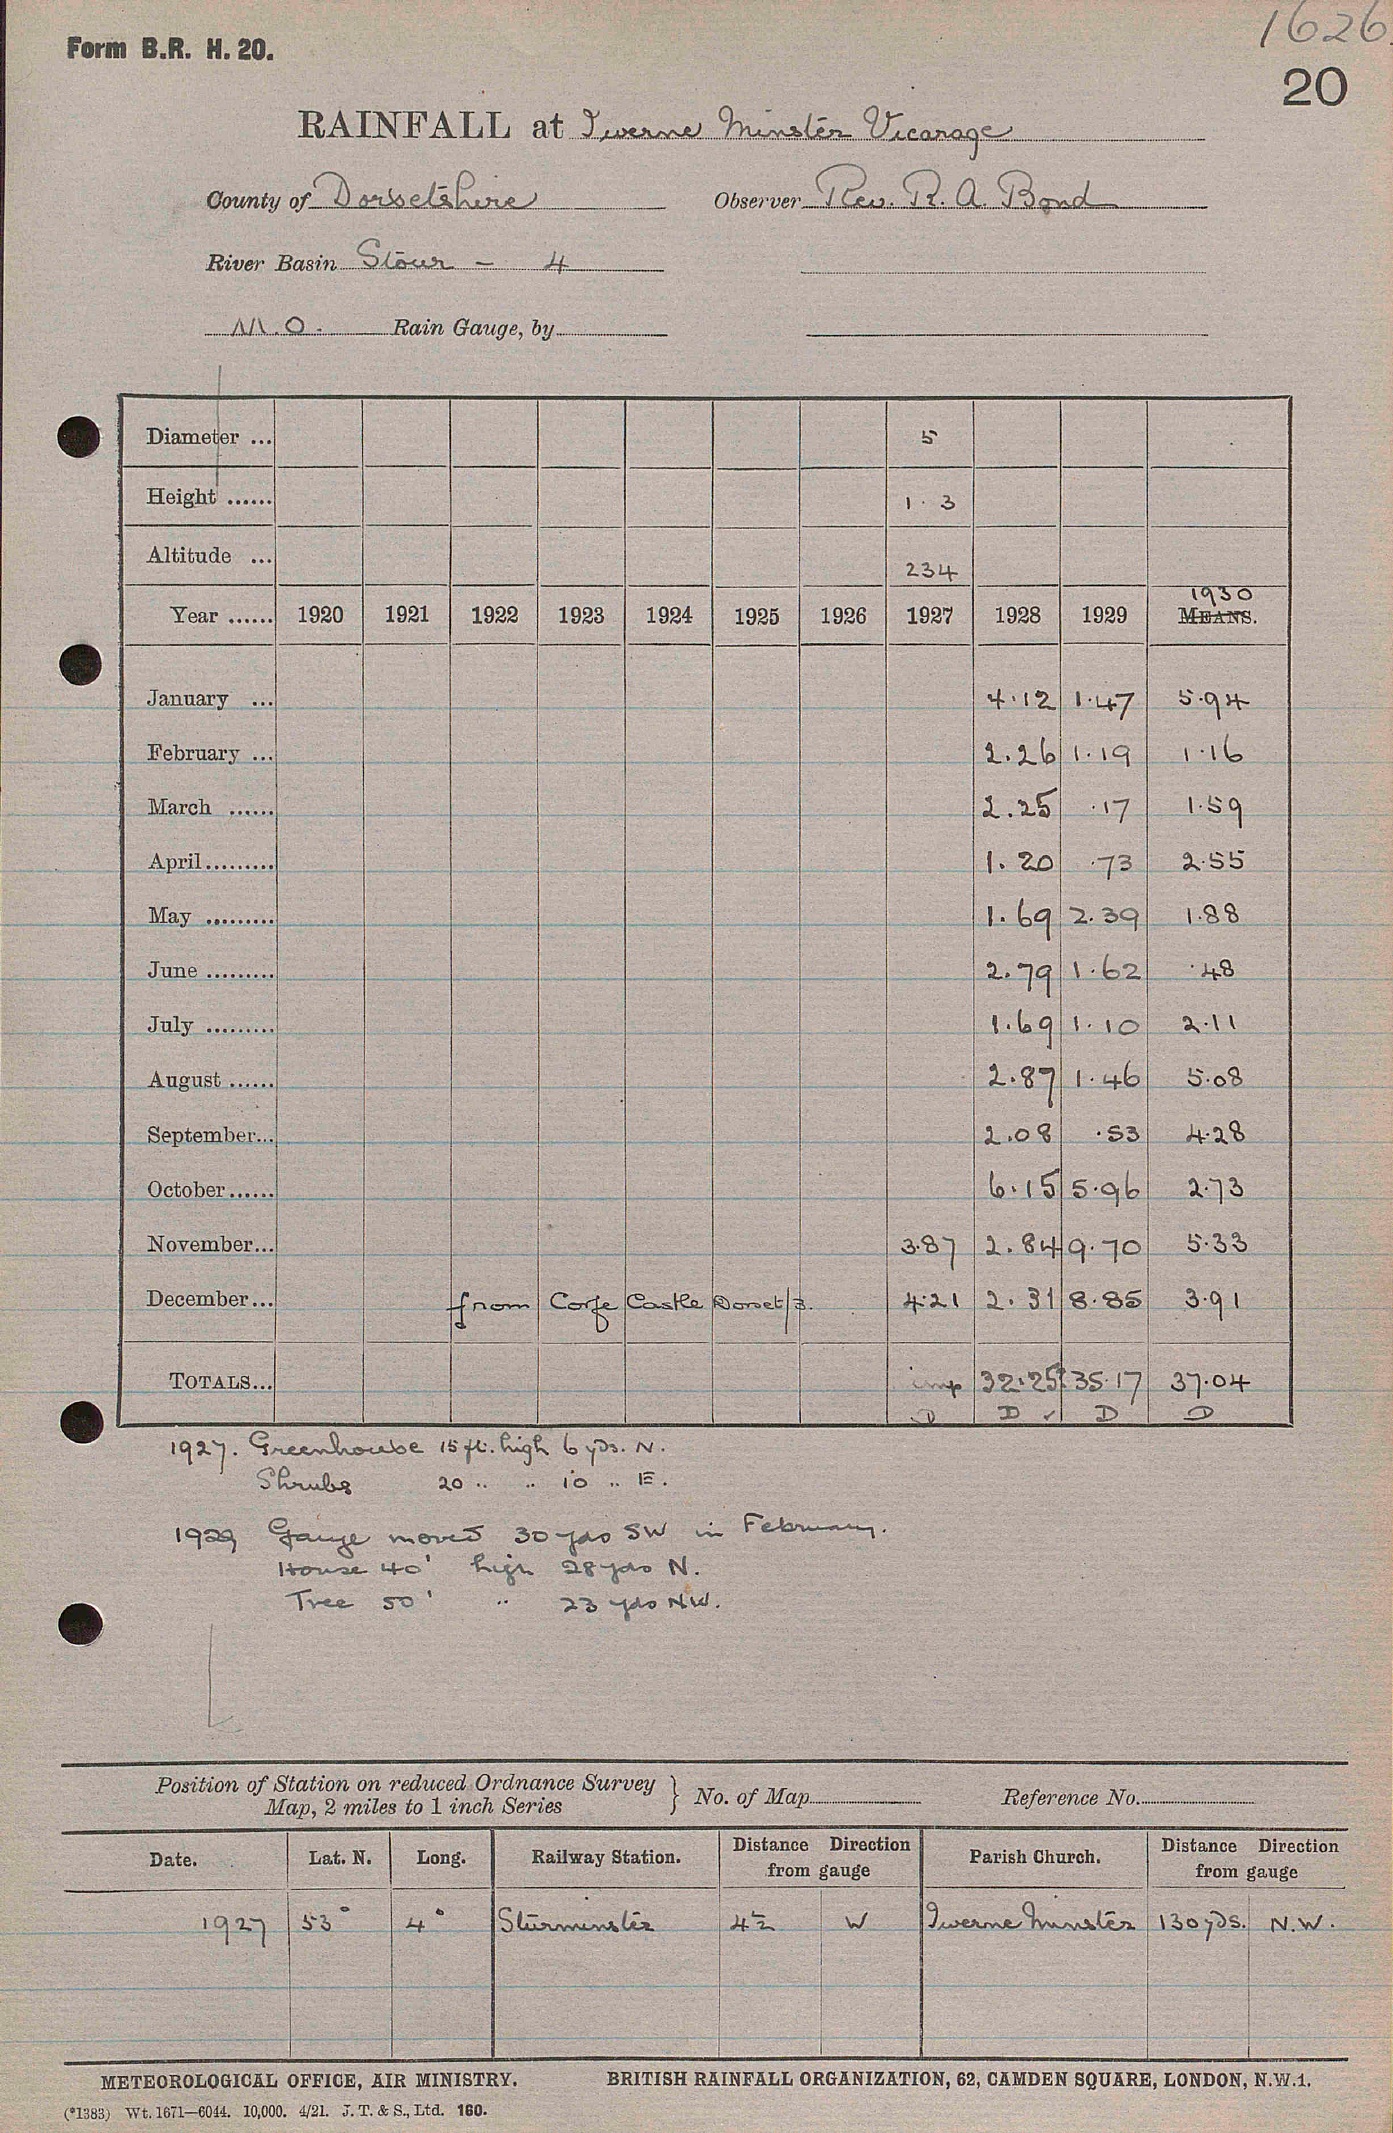 1626.
Form B.R. H. 20.
20
RAINFALL at Iwerne Minster Vicarage
County of Dorsetshire Observer Rev. R. A. Bond
River Basin Stour - 4
M.O. Rain Gauge, by
Diameter ... 5
Height ...... 1.3
Altitude ... 234
1930
Year ...... 1920 1921 1922 1923 1924 1925 1926 1927 1928 1929 MEANS.
January ... 4.12 1.47 5.94
February ... 2.26 1.19 1.16
March ...... 2.25 .17 1.59
April......... 1.20 .73 2.55
May ......... 1.69 2.39 1.88
June ......... 2.79 1.62 .48
July ......... 1.69 1.10 2.11
August ...... 2.87 1.46 5.08
September... 2.08 .53 4.28
October...... 6.15 5.96 2.73
November... 3.87 2.84 9.70 5.33
December... from Corfe Castle Dorset/3. 4.21 2.31 8.85 3.91
TOTALS... imp 32.25 35.17 37.04
D D ✓ D D
1927. Greenhouse 15 ft. high 6 yds. N.
Shrubs 20 .. .. 10 .. E.
1929 Gauge moved 30 yds SW in February.
House 40' high 28 yds N.
Tree 50' .. 23 yds NW.
Position of Station on reduced Ordnance Survey
Map, 2 miles to 1 inch Series } No. of Map Reference No.
Date. Lat. N. Long. Railway Station. Distance Direction from gauge Parish Church. Distance Direction from gauge
1927 53° 4° Sturminster 4½ W Iwerne Minster 130 yds. N.W.
METEOROLOGICAL OFFICE, AIR MINISTRY. BRITISH RAINFALL ORGANIZATION, 62, CAMDEN SQUARE, LONDON, N.W.1.
(*1383) Wt. 1671—6044. 10,000. 4/21. J. T. & S., Ltd. 160.